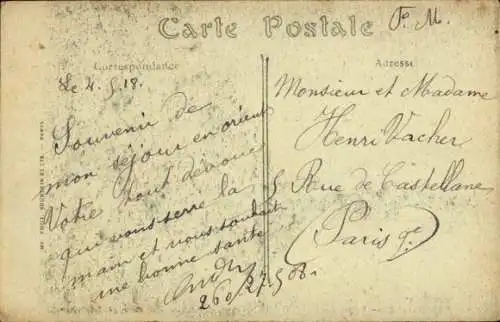 Carte Postale
F. M.
Correspondance
Adresse
Le 4.5.18.
Souvenir de
mon séjour en orient
Votre tout dévoué
qui vous serre la
main et vous souhait
une bonne santé
Monsieur et Madame
Henri Vacher
5 Rue de Castellane
Paris 9e